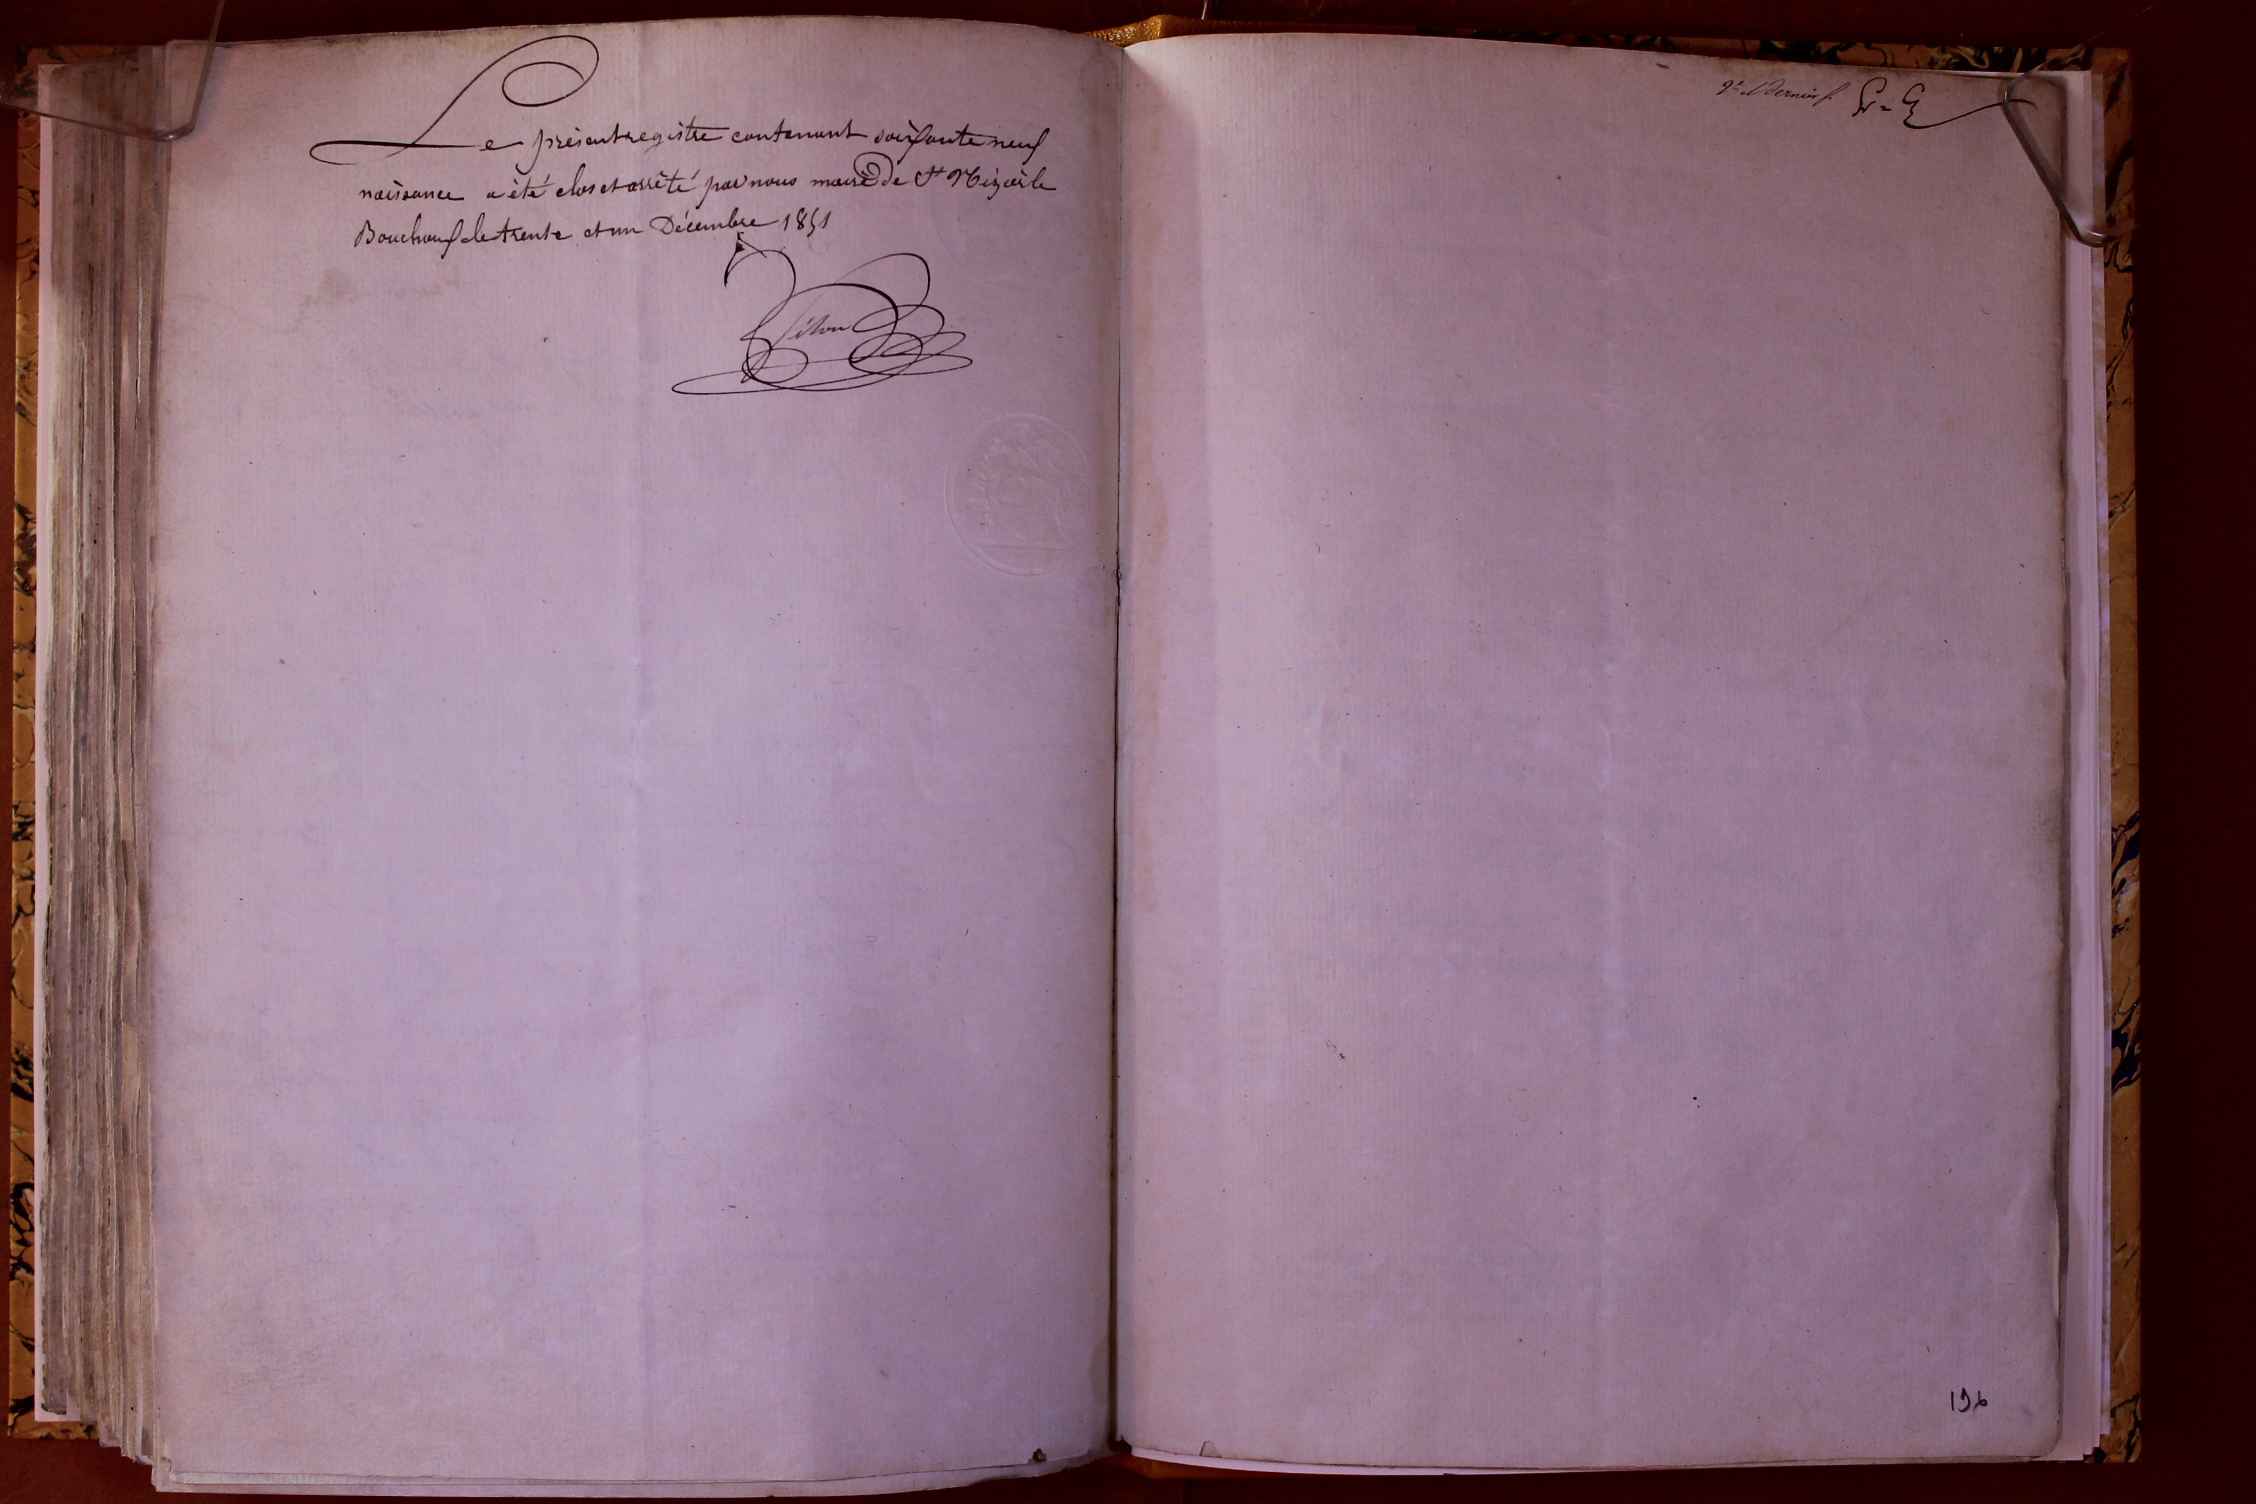 Le présent registre contenant soixante neuf
naissance a été clos et arrêté par nous maire de St Nizier le
Bouchoux le trente et un Décembre 1851
et dernier f.
196